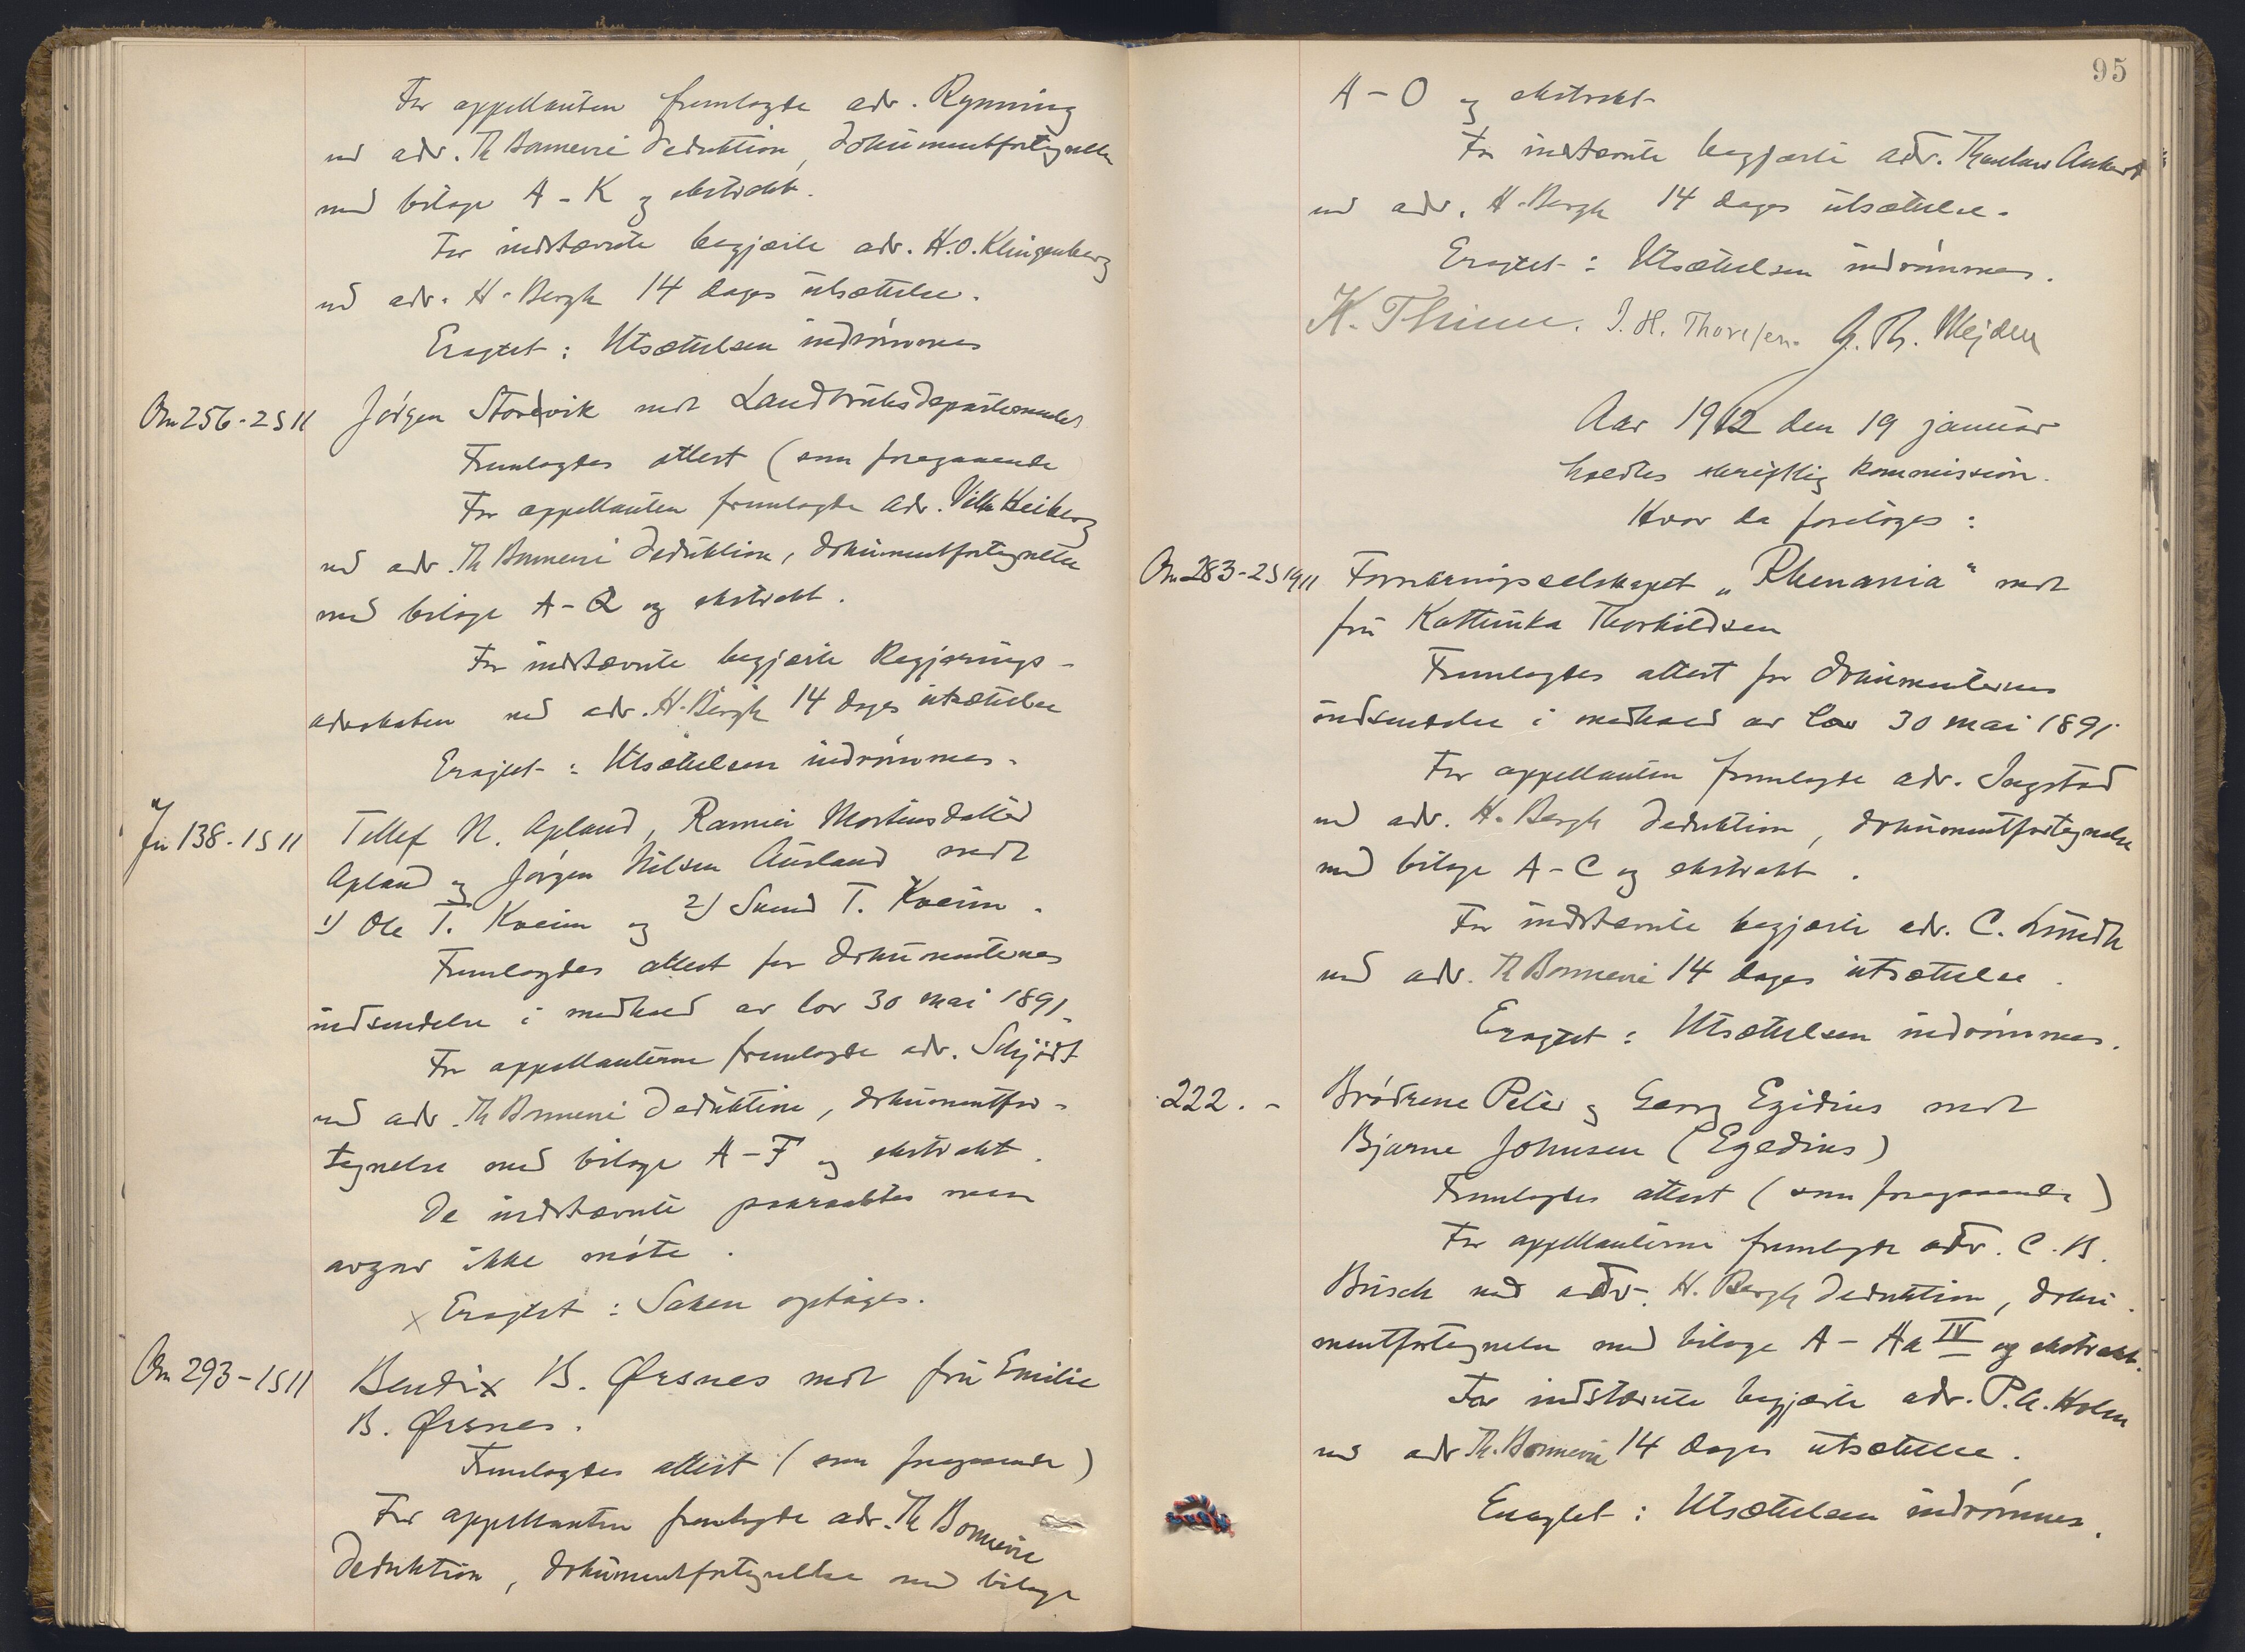 For appellanten fremlagde adv. Rynning
ved adv. Th Bonnevie deduktion, dokumentfortegnelse
med bilage A-K og ekstrakt.
For indstævnte begjærte adv. H.O. Klingenberg
ved adv. H. Bergh 14 dages utsættelse.
Eragtet: Utsættelsen indrømmes
On 256-2S 11
Jørgen Storvik mot Landbruksdepartementet
Fremlagdes attest (som foregaaende
For appellanten fremlagde adv. Vilh Heiberg
ved adv. Th Bonnevie deduktion, dokumentfortegnelse
med bilage A-Q og ekstrakt.
For indstævnte begjærte Regjerings-
advokaten ved adv. H. Bergh 14 dages utsættelse
Eragtet: Utsættelsen indrømmes.
138-1S 11
Tellef N. Apland, Martinsdatter
Apland og Jørgen Nilsen Ausland mot
1) Ole T. Kveim og 2) Svend T. Kveim.
Fremlagdes attest for dokumenternes
indsendelse i medhold av lov 30 mai 1891.
For appellanterne fremlagde adv. Schjødt
ved adv. Th Bonnevie deduktion, dokumentfor-
tegnelse med bilage A-F og ekstrakt.
De indstævnte paaraabtes men
avgav ikke møte.
x Eragtet: Saken optages.
On 293-1S 11
Bendix B. Ørsnes mot fru Emilie
B. Ørsnes.
Fremlagdes attest (som foregaaende)
For appellanten fremlagde adv. Th Bonnevie
deduktion, dokumentfortegnelse med bilage
95
A-O og ekstrakt
For indstævnte begjærte adv.
ved adv. H. Bergh 14 dages utsættelse.
Eragtet: Utsættelsen indrømmes.
K. Thinn. J. H. Thoresen. Mejdell
Aar 1912 den 19 januar
holdtes skriftlig kommission.
Hvor da foretoges:
On 283-2S 1911
Forsikringsselskapet „Rhenania" mot
fru Kathinka Thorkildsen
Fremlagdes attest for dokumenternes
indsendelse i medhold av lov 30 mai 1891
For appellanten fremlagde adv. Ingstad
ved adv. H. Bergh deduktion, dokumentfortegnelse
med bilage A-C og ekstrakt.
For indstævnte begjærte adv. C. Lundh
ved adv. Th Bonnevie 14 dages utsættelse.
Eragtet: Utsættelsen indrømmes.
222. -
Brødrene Peter og Georg Egidius mot
Bjarne Johnsen (Egedius)
Fremlagdes attest (som foregaaende)
For appellanterne fremlagde adv. C. B.
Busch ved adv. H. Bergh deduktion, doku
mentfortegnelse med bilage A- Ha IV og ekstrakt.
For indstævnte begjærte adv. P.A. Holm
ved adv Th. Bonnevie 14 dages utsættelse.
Eragtet: Utsættelsen indrømmes.